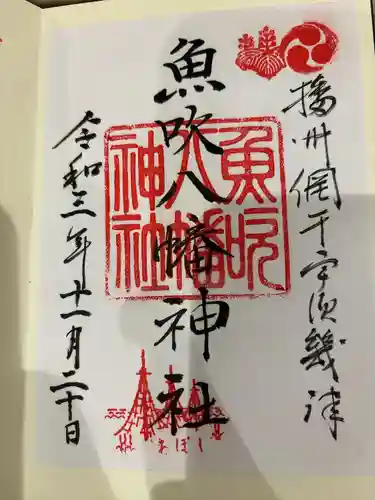 播州網干宇須幾津
魚吹八幡神社
魚吹
八幡
神社
令和三年十一月二十日